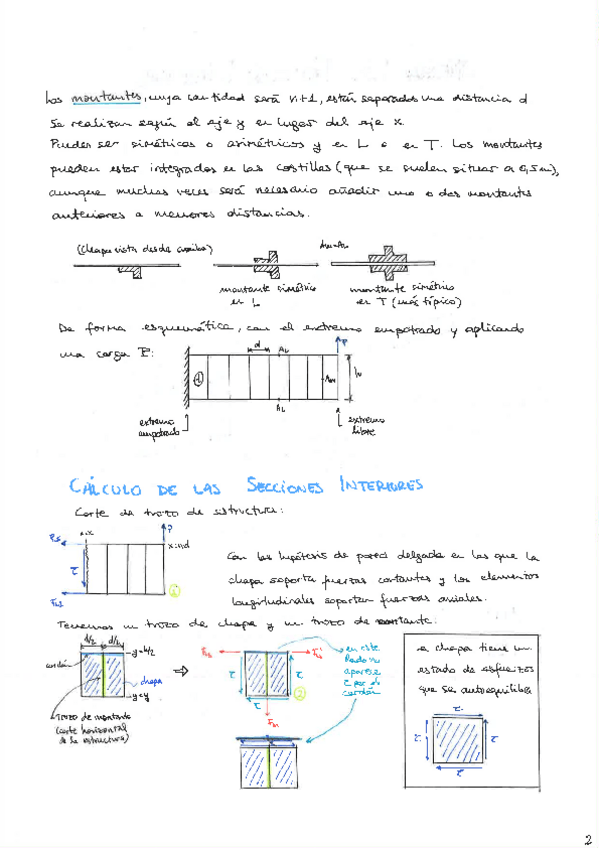 Los montantes, cuya cantidad será n+1, están separados una distancia d
Se realizan según el eje y en lugar del eje x.
Pueden ser simétricos o asimétricos y en L o en T. Los montantes
pueden estar integrados en las costillas (que se suelen situar a 0,5m),
aunque muchas veces será necesario añadir uno o dos montantes
anteriores a menores distancias.
(Chapa vista desde arriba)
montante simétrico
en L
montante simétrico
en T (más típico)
De forma esquemática, con el extremo empotrado y aplicando
una carga P:
d
AL
P
h
AL
extremo
empotrado
extremo
libre
CÁLCULO DE LAS SECCIONES INTERIORES
Corte de trozo de estructura:
x=x
P
x=nd
τ
1
Con las hipótesis de pared delgada en las que la
chapa soporta fuerzas cortantes y los elementos
longitudinales soportan fuerzas axiales.
Tenemos un trozo de chapa y un trozo de montante:
d/2 d/2
y=h/2
cordón
chapa
y=y
Trozo de montante
(corte horizontal
de la estructura)
⇒
τ
τ
τ
2
en este
lado no
aparece
τ por el
cordón
la chapa tiene un
estado de esfuerzos
que se autoequilibra
τ
τ
τ
τ
2